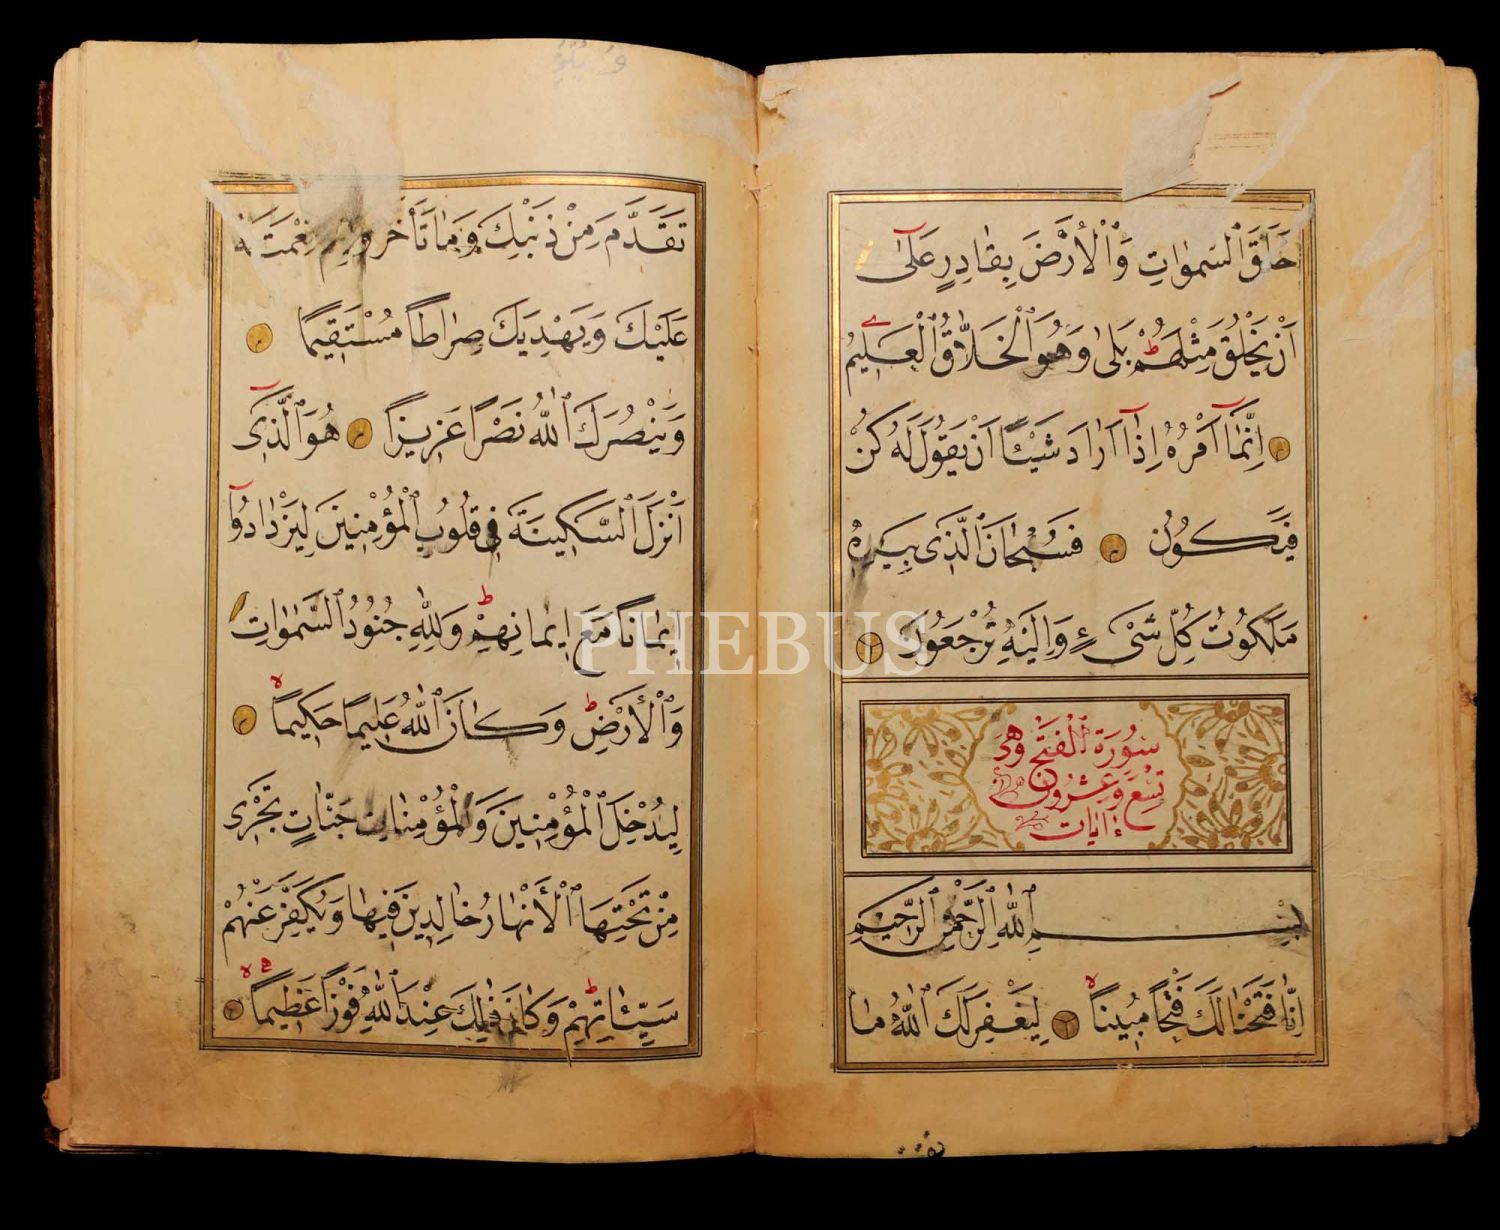 خَلَقَ ٱلسَّمٰوَاتِ وَٱلْأَرْضَ بِقَادِرٍ عَلٰٓى
اَنْ يَخْلُقَ مِثْلَهُمْ ط بَلٰى وَهُوَ ٱلْخَلَّاقُ ٱلْعَلِيمُ
اِنَّمَٓا اَمْرُهُ اِذَٓا اَرَادَ شَيْـًٔا اَنْ يَقُولَ لَهُ كُنْ
فَيَكُونُ فَسُبْحَانَ ٱلَّذِى بِيَدِهِ
مَلَكُوتُ كُلِّ شَىْءٍ وَاِلَيْهِ تُرْجَعُونَ
سُورَةُ ٱلْفَتْحِ وَهِىَ
تِسْعٌ وَعِشْرُونَ
اٰيَات
بِسْمِ ٱللّٰهِ ٱلرَّحْمٰنِ ٱلرَّحِيمِ
اِنَّا فَتَحْنَا لَكَ فَتْحًا مُبِينًا لا لِيَغْفِرَ لَكَ ٱللّٰهُ مَا
تقد
تَقَدَّمَ مِنْ ذَنْبِكَ وَمَا تَأَخَّرَ وَيُتِمَّ نِعْمَتَهُ
عَلَيْكَ وَيَهْدِيَكَ صِرَاطًا مُسْتَقِيمًا
وَيَنْصُرَكَ ٱللّٰهُ نَصْرًا عَزِيزًا هُوَ ٱلَّذِٓى
اَنْزَلَ ٱلسَّكِينَةَ فِى قُلُوبِ ٱلْمُؤْمِنِينَ لِيَزْدَادُٓوا
اِيمَانًا مَعَ اِيمَانِهِمْ ط وَلِلّٰهِ جُنُودُ ٱلسَّمٰوَاتِ
وَٱلْأَرْضِ ط وَكَانَ ٱللّٰهُ عَلِيمًا حَكِيمًا لا
لِيُدْخِلَ ٱلْمُؤْمِنِينَ وَٱلْمُؤْمِنَاتِ جَنَّاتٍ تَجْرِى
مِنْ تَحْتِهَا ٱلْأَنْهَارُ خَالِدِينَ فِيهَا وَيُكَفِّرَ عَنْهُمْ
سَيِّـَٔاتِهِمْ ط وَكَانَ ذٰلِكَ عِنْدَ ٱللّٰهِ فَوْزًا عَظِيمًا لا
PHEBUS